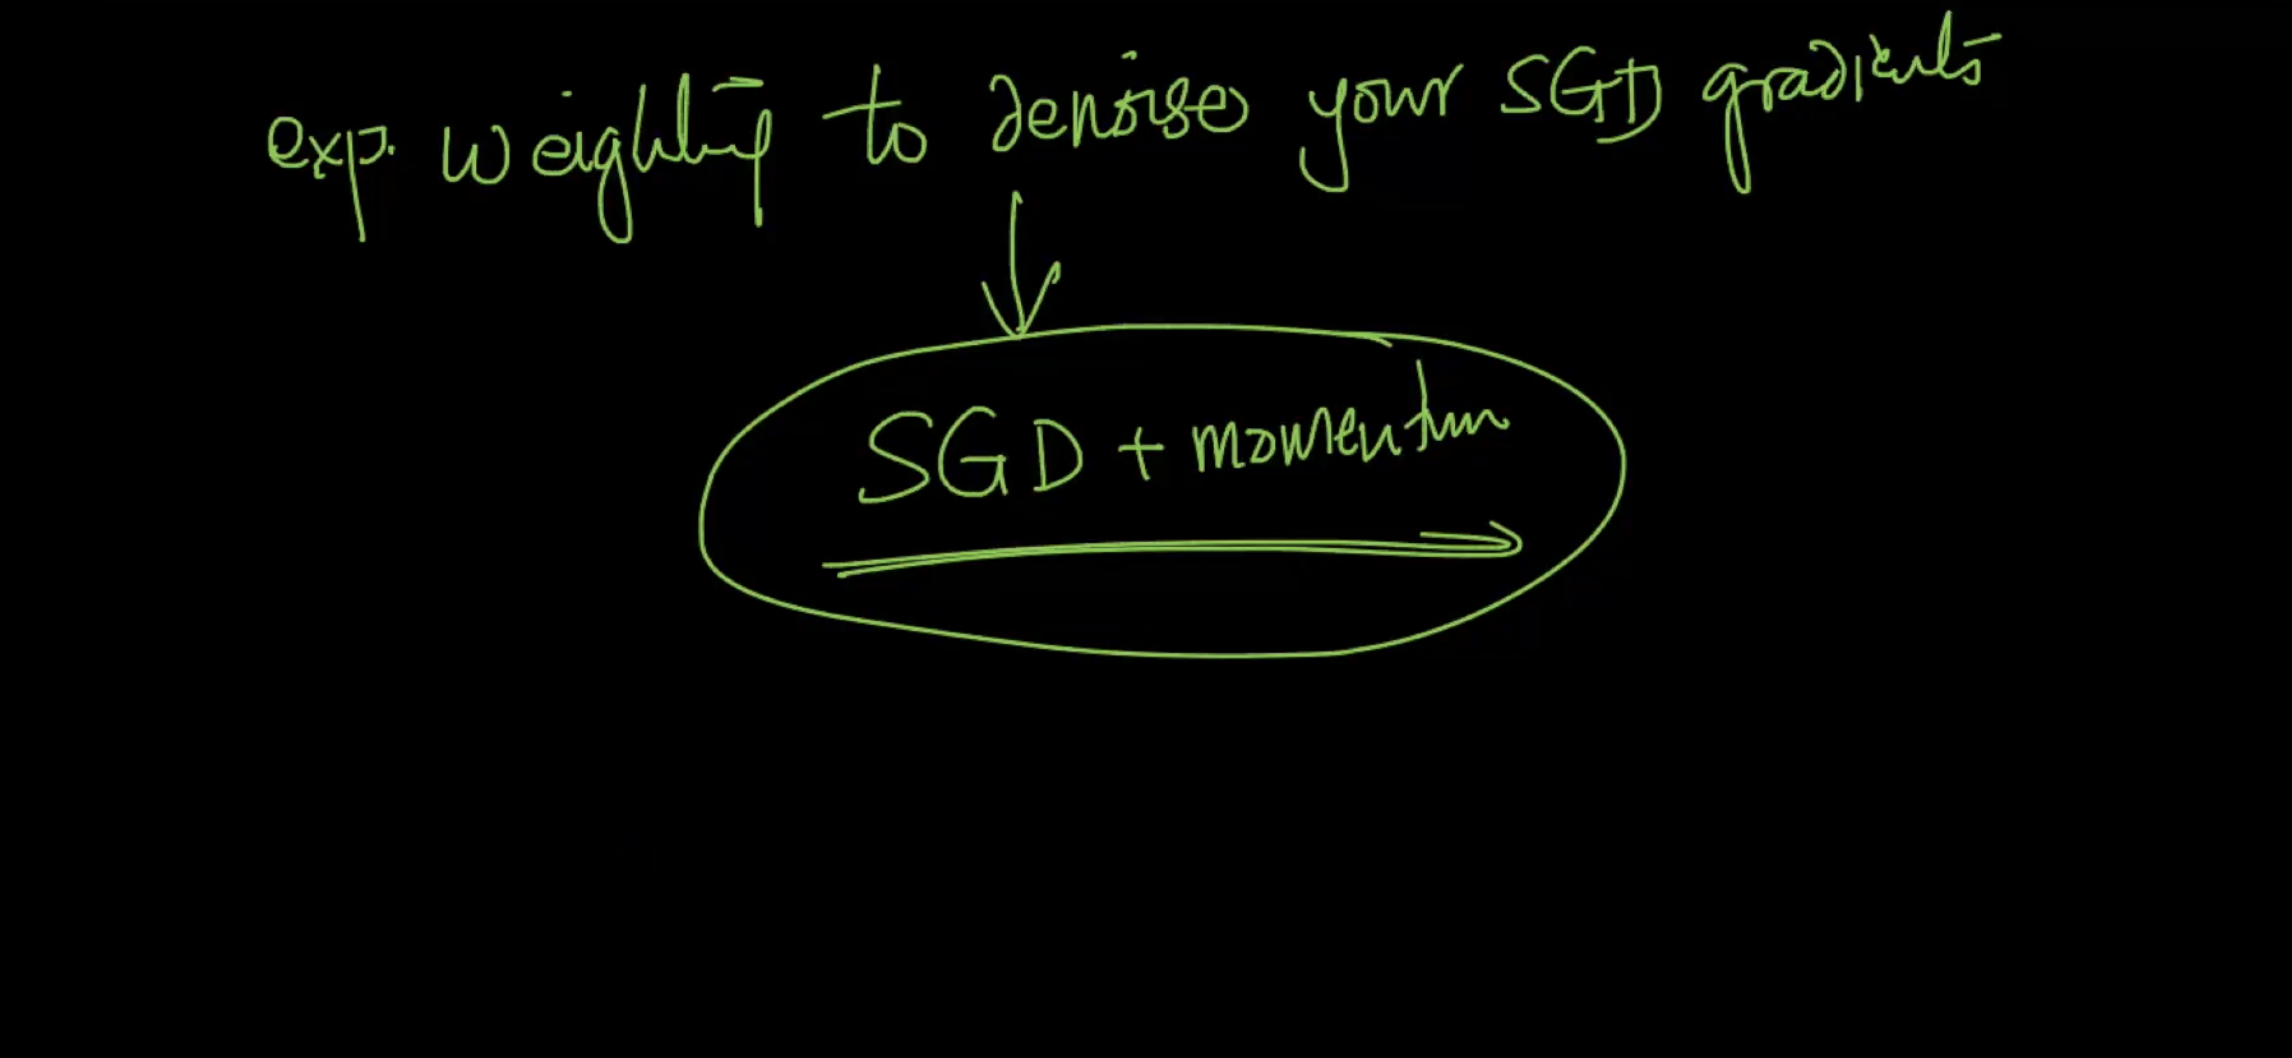 exp. weighting to denoise your SGD gradients
SGD + momentum